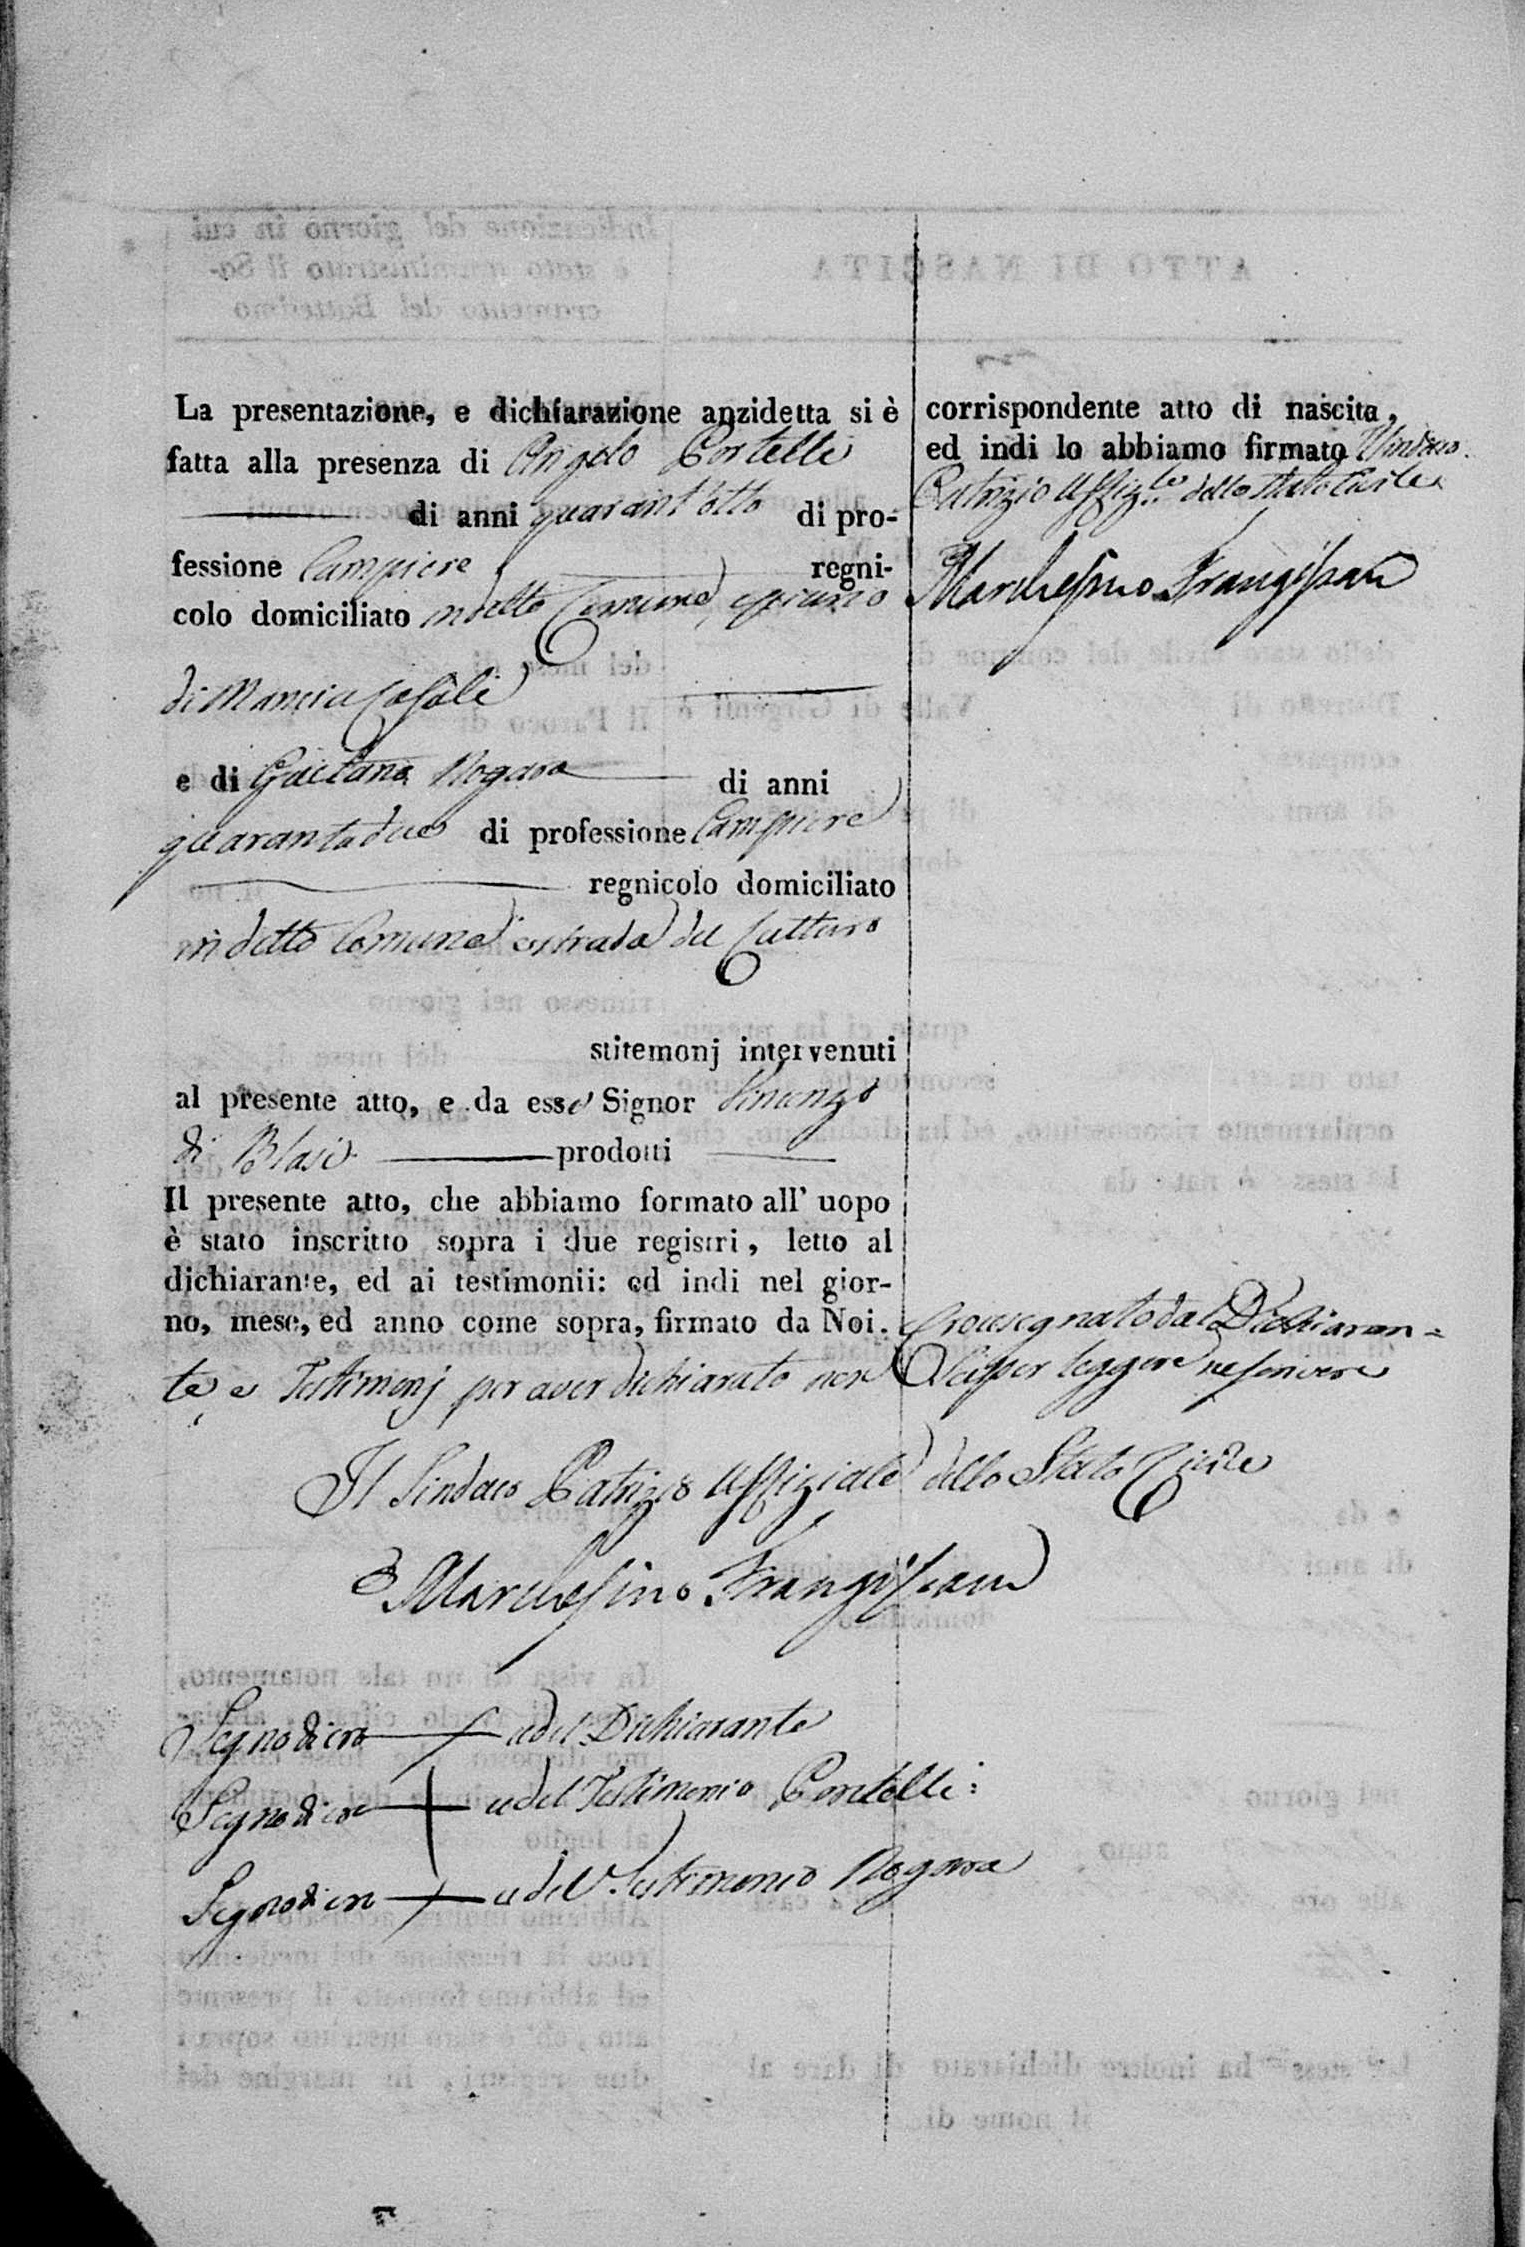 La presentazione, e dichiarazione anzidetta si è
fatta alla presenza di Angelo Portelli
di anni quarant'otto di pro-
fessione Campiere regni-
colo domiciliato in detto Comune,
di Mancia Casale
e di Gaetano Nogara di anni
quarantadue di professione Campiere
regnicolo domiciliato
in detto Comune strada del
stitemonj intervenuti
al presente atto, e da esso Signor Vincenzo
di Blasi prodotti
Il presente atto, che abbiamo formato all' uopo
è stato inscritto sopra i due registri, letto al
dichiarante, ed ai testimonii: ed indi nel gior-
no, mese, ed anno come sopra, firmato da Noi.
Crocesegnato dal Dichiaran=
te e Testimonj per aver dichiarato non saper leggere ne scrivere
Il Sindaco Patrizio Uffiziale dello Stato Civile
Marchesino Frangipani
Segno di cro a del Dichiarante
Segno di cro a del Testimonio Portelli:
Segno di cro a del Testimonio Nogara
corrispondente atto di nascita,
ed indi lo abbiamo firmato Sindaco
Patrizio Uffiz.le dello Stato Civile
Marchesino Frangipani